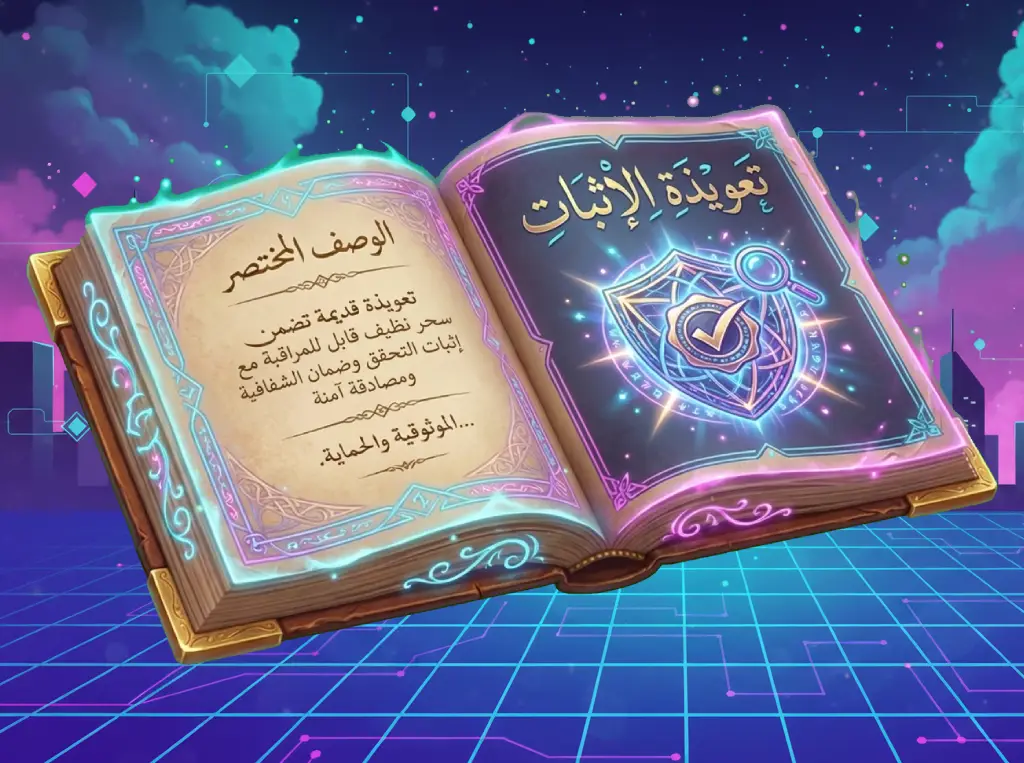 تَعَوِيْذَةِ الإِثبَاتِ
الوصف المختصر
تعويذة قديمة تضمن
سحر نظيف قابل للمراقبة مع
إثبات التحقق وضمان الشفافية
ومصادقة آمنة
...الموثوقية والحماية.